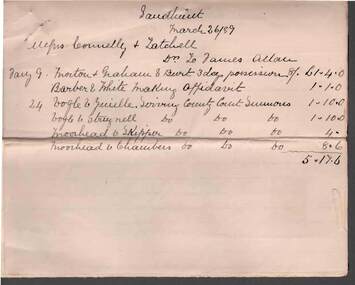 Sandhurst
March 26/89
Messrs Connelly & Tatchell
Dr. To James Allan
Jany 9. Morton v Graham & Burt 3 days possession 8/- £1-4-0
Barber v White Making Affidavit 1-1-0
24 Vogle v Serving County Court Summons 1-10-0
Vogle v Do Do Do 1-10-0
Moorhead v Skipper Do Do Do 4-
Moorhead v Chambers Do Do Do 8-6
5-17-6